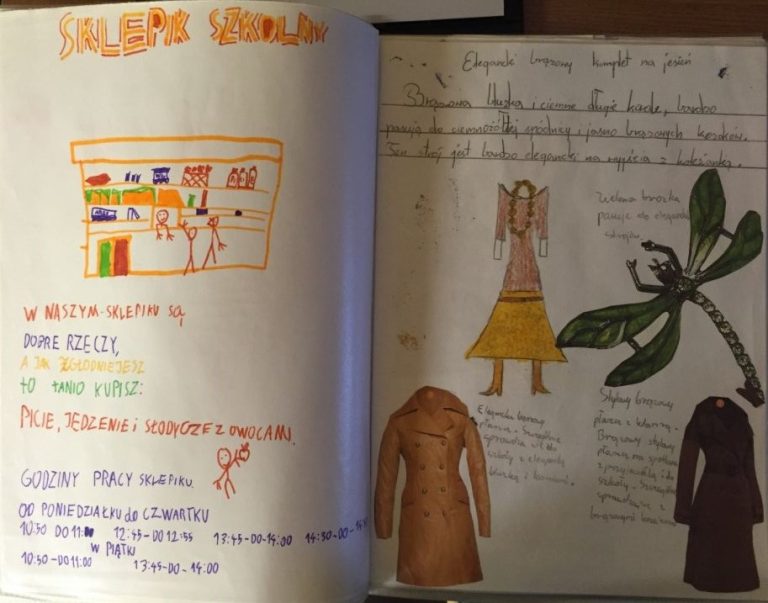 SKLEPIK SZKOLNY
W NASZYM SKLEPIKU SĄ
DOBRE RZECZY,
A JAK ZGŁODNIEJESZ
TO TANIO KUPISZ:
PICIE, JEDZENIE i SŁODYCZE Z OWOCAMI.
GODZINY PRACY SKLEPIKU.
OD PONIEDZIAŁKU do CZWARTKU
10:50 DO 11:00 12:45-DO 12:55 13:45-DO-14:00 14:30-DO-
W PIĄTKI
10:50-DO 11:00 13:45-DO-14:00
Elegancki brązowy komplet na jesień
Brązowa bluzka i ciemne długie korale, bardzo
pasują do ciemnożółtej spódnicy i jasno brązowych kozaków.
Ten strój jest bardzo elegancki na wyjścia z koleżanką.
Zielona broszka
pasuje do eleganckich
strojów.
Elegancki brązowy
płaszcz. Szczególnie
sprawdza się do
szkoły z elegancką
bluzką i
Stylowy brązowy
płaszcz z
Brązowy stylowy
płaszcz na spotkania
z przyjaciółką i do
szkoły. Szczególnie
z
brązowymi